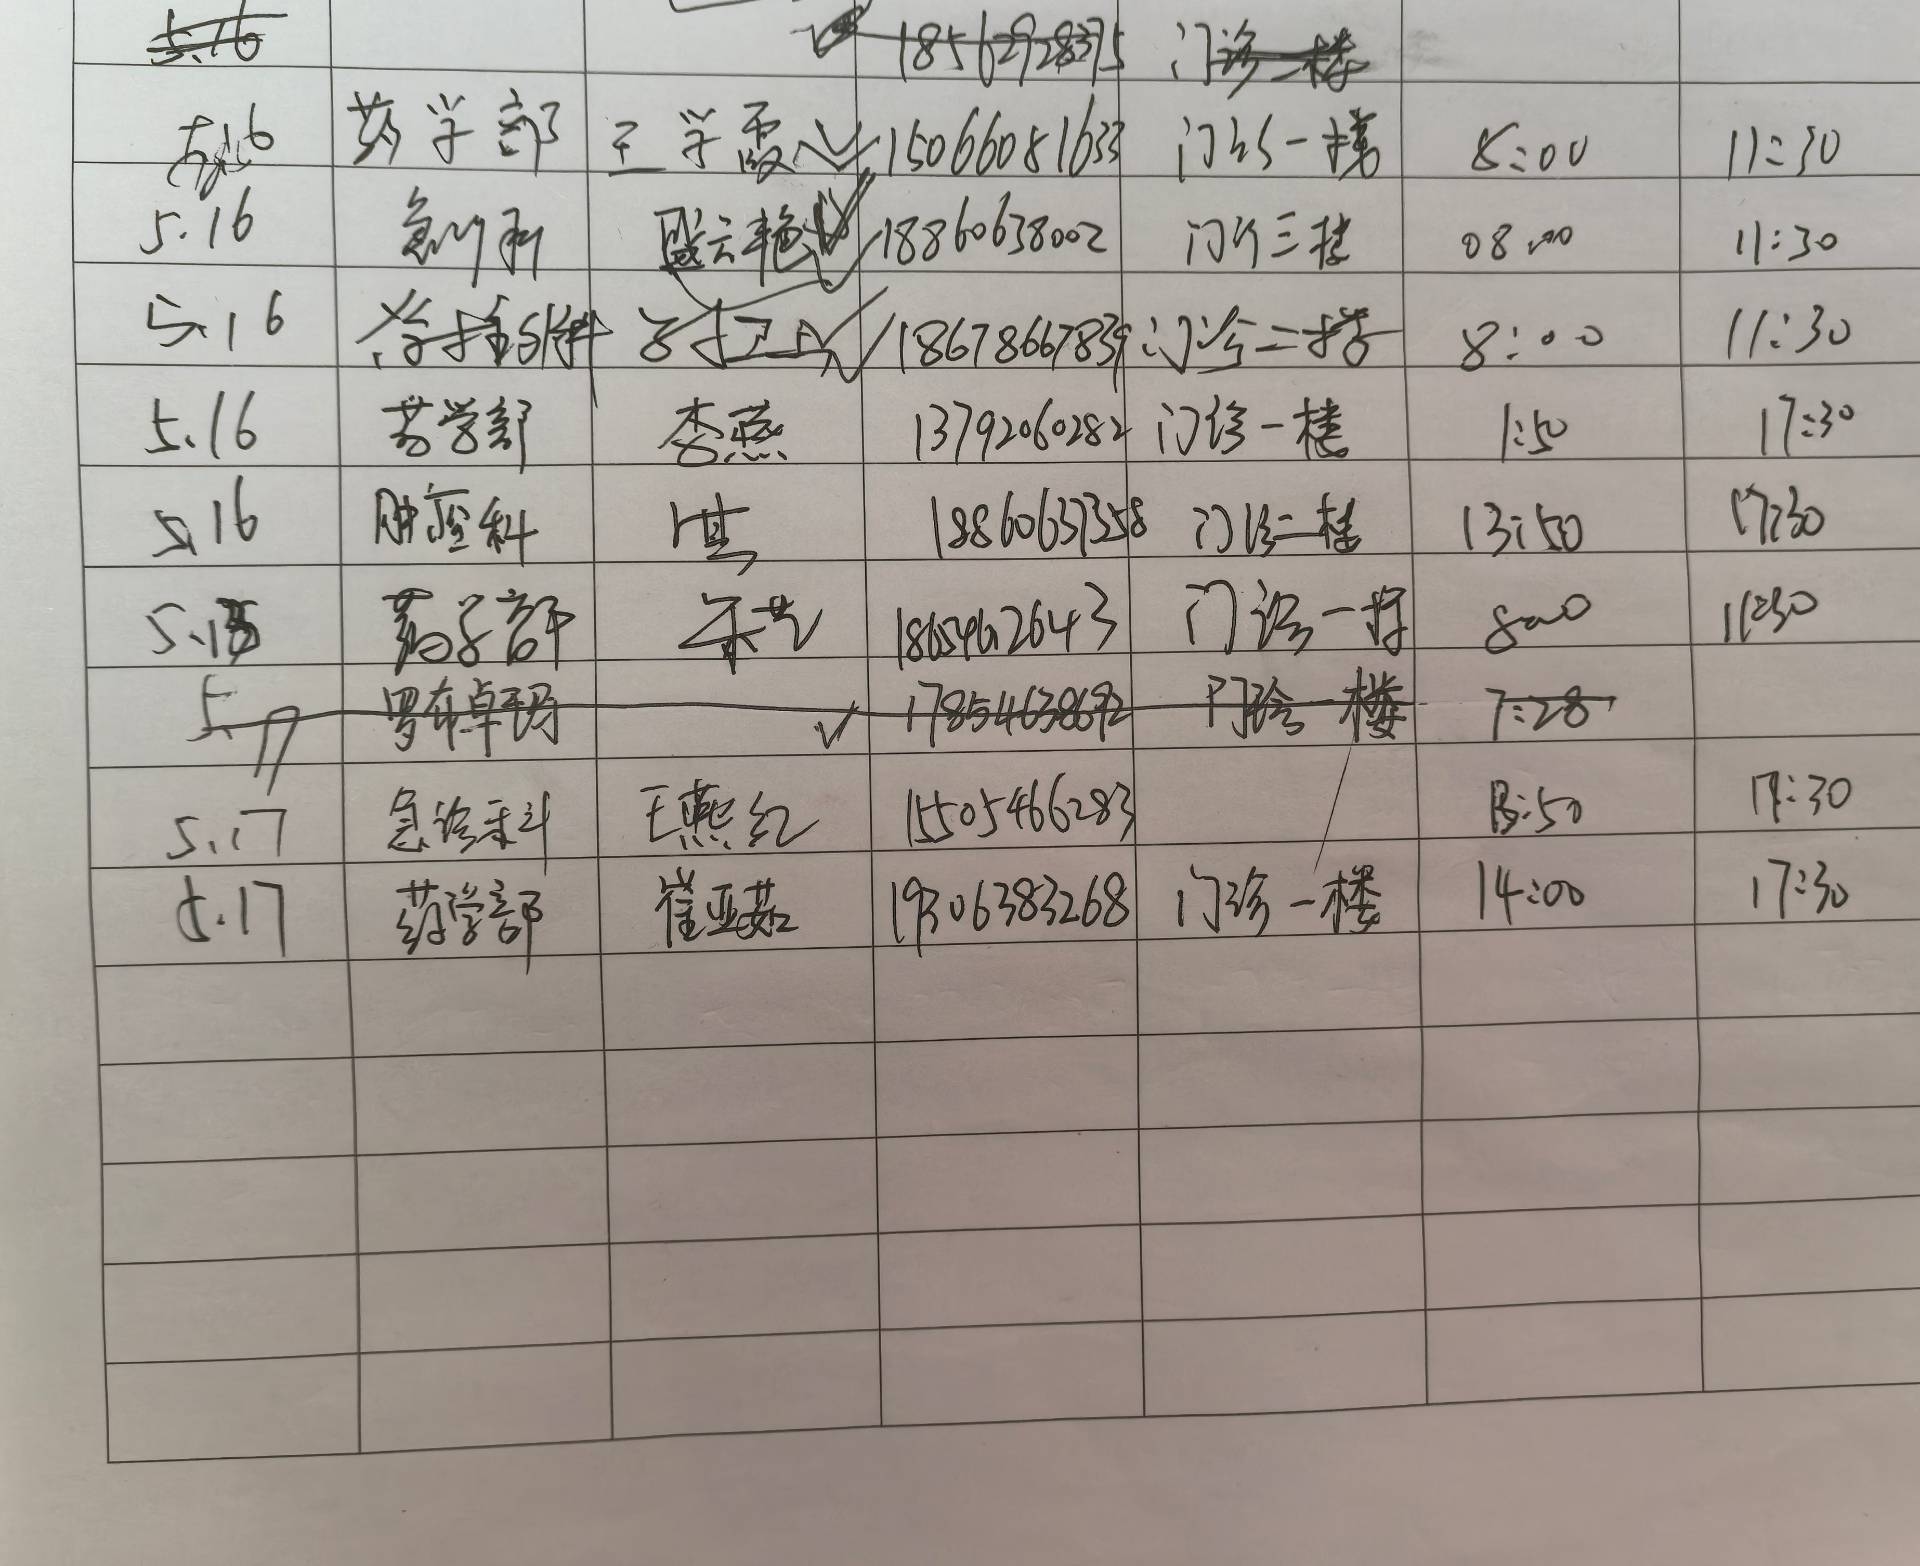 5.16 18562928375 门诊二楼
5.16 药学部 王学霞 15066081633 门诊一楼 8:00 11:30
5.16 急诊科 盛云艳 18860638002 门诊三楼 08:00 11:30
5.16 18678667839 门诊二楼 8:00 11:30
5.16 药学部 李燕 13792060282 门诊一楼 1:50 17:30
5.16 肿瘤科 18860637358 门诊二楼 13:50 17:30
药学部 18654612643 门诊一楼 8:00 11:30
5.17 罗布卓玛 17854638692 门诊一楼 7:28
5.17 急诊科 王燕红 15505466283 13:50 17:30
5.17 药学部 崔亚茹 19306383268 门诊一楼 14:00 17:30